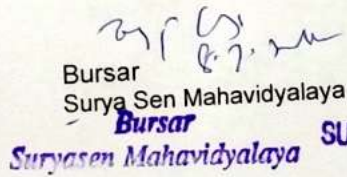 Bursar
Surya Sen Mahavidyalaya
Bursar
Suryasen Mahavidyalaya
SU